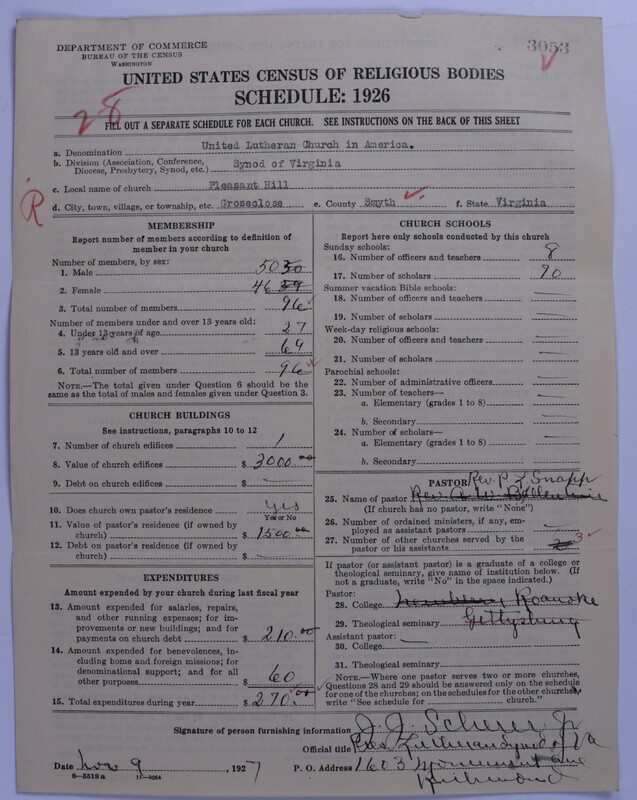 DEPARTMENT OF COMMERCE
BUREAU OF THE CENSUS
WASHINGTON
3053
UNITED STATES CENSUS OF RELIGIOUS BODIES
SCHEDULE: 1926
28
FILL OUT A SEPARATE SCHEDULE FOR EACH CHURCH. SEE INSTRUCTIONS ON THE BACK OF THIS SHEET
a. Denomination United Lutheran Church in America.
b. Division (Association, Conference, Diocese, Presbytery, Synod, etc.) Synod of Virginia
c. Local name of church Pleasant Hill
R
d. City, town, village, or township, etc. Groseclose e. County Smyth f. State Virginia
MEMBERSHIP
Report number of members according to definition of
member in your church
Number of members, by sex:
1. Male 50 30
2. Female 46 39
3. Total number of members 96
Number of members under and over 13 years old:
4. Under 13 years of age 27
5. 13 years old and over 69
6. Total number of members 96
NOTE.—The total given under Question 6 should be the
same as the total of males and females given under Question 3.
CHURCH BUILDINGS
See instructions, paragraphs 10 to 12
7. Number of church edifices 1
8. Value of church edifices $ 3000.00
9. Debt on church edifices $
10. Does church own pastor's residence? yes
Yes or No
11. Value of pastor's residence (if owned by
church) $ 1500.00
12. Debt on pastor's residence (if owned by
church) $
EXPENDITURES
Amount expended by your church during last fiscal year
13. Amount expended for salaries, repairs,
and other running expenses; for im-
provements or new buildings; and for
payments on church debt $ 210.00
14. Amount expended for benevolences, in-
cluding home and foreign missions; for
denominational support; and for all
other purposes $ 60
15. Total expenditures during year $ 270.00
CHURCH SCHOOLS
Report here only schools conducted by this church
Sunday schools:
16. Number of officers and teachers 8
17. Number of scholars 70
Summer vacation Bible schools:
18. Number of officers and teachers
19. Number of scholars
Week-day religious schools:
20. Number of officers and teachers
21. Number of scholars
Parochial schools:
22. Number of administrative officers
23. Number of teachers—
a. Elementary (grades 1 to 8)
b. Secondary
24. Number of scholars—
a. Elementary (grades 1 to 8)
b. Secondary
PASTOR Rev. P. L. Snapp
25. Name of pastor Rev.
(If church has no pastor, write "None")
26. Number of ordained ministers, if any, em-
ployed as assistant pastors
27. Number of other churches served by the
pastor or his assistants 3
If pastor (or assistant pastor) is a graduate of a college or
theological seminary, give name of institution below. (If
not a graduate, write "No" in the space indicated.)
Pastor:
28. College Roanoke
29. Theological seminary Gettysburg
Assistant pastor:
30. College
31. Theological seminary
NOTE.—Where one pastor serves two or more churches,
Questions 28 and 29 should be answered only on the schedule
for one of the churches; on the schedules for the other churches,
write "See schedule for church."
Signature of person furnishing information J. J. Scherer Jr
Official title Pres. Lutheran Synod of Va
Date Nov 9, 1927 P. O. Address 1603 Monument ave
8—5518a 11—9054 Richmond